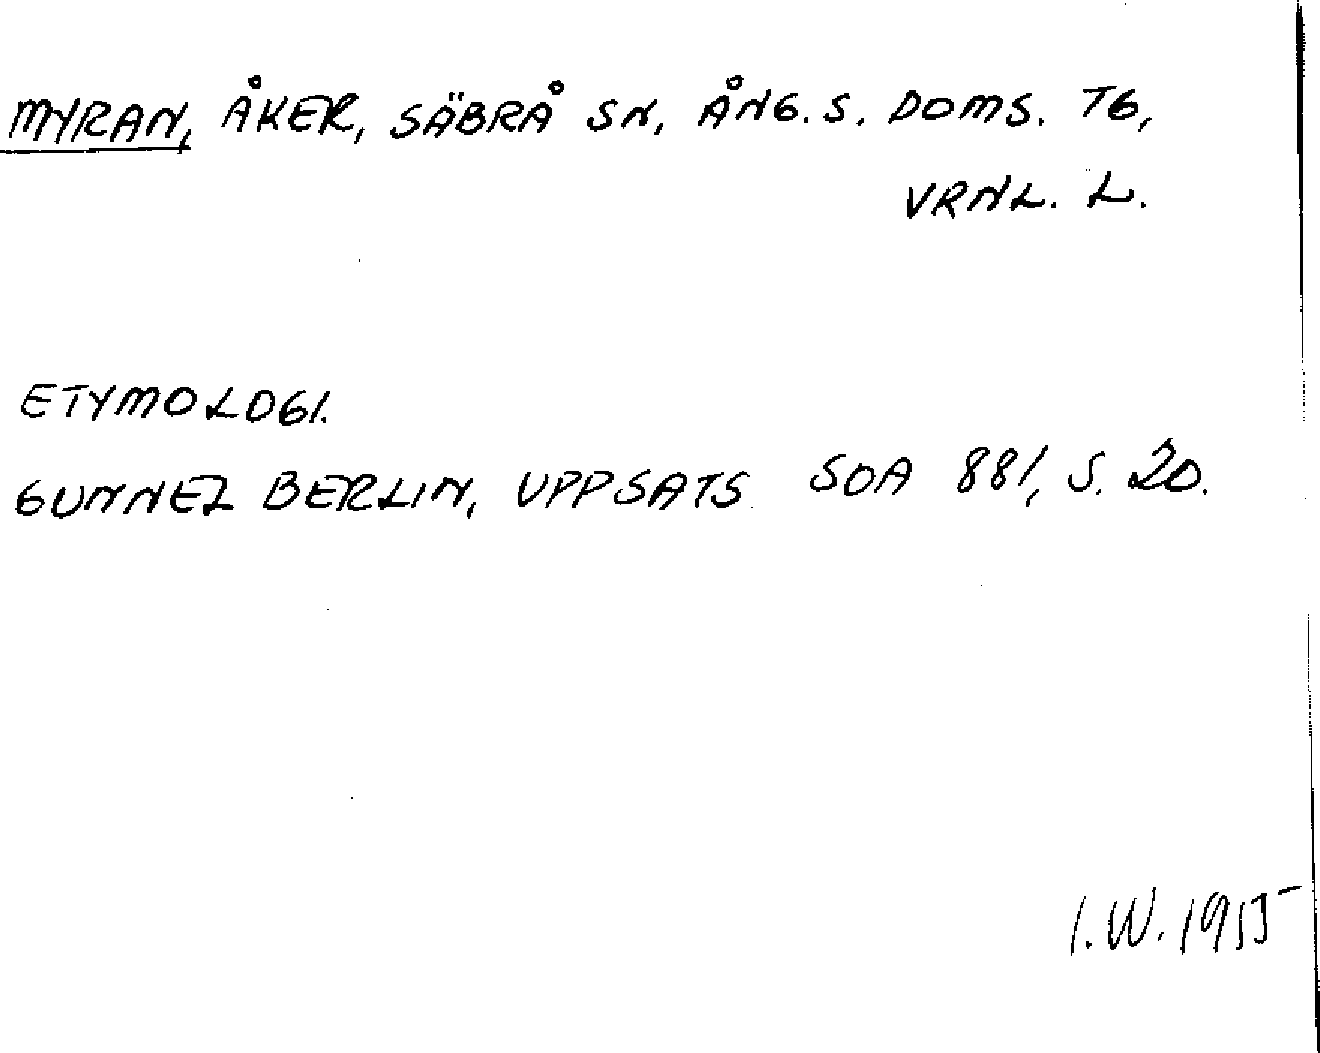 MYRAN, ÅKER, SÄBRÅ SN, ÅNG. S. DOMS. TG,
VRNL. L.
ETYMOLOGI.
GUNNEL BERLIN, UPPSATS SOA 881, S. 20.
I.W. 1955